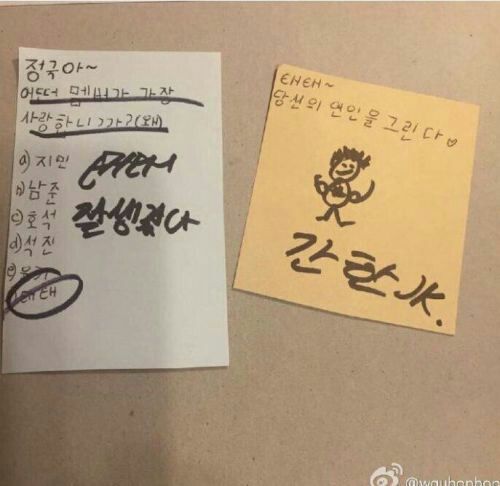 정국아~
어떠 멤버가 가장
사랑합니까?(왜)
a) 지민
b) 남준
c) 호석
d) 석진
e)
태태
태태
잘생겼다
태태~
당신의 연인을 그린다♡
간한 JK.